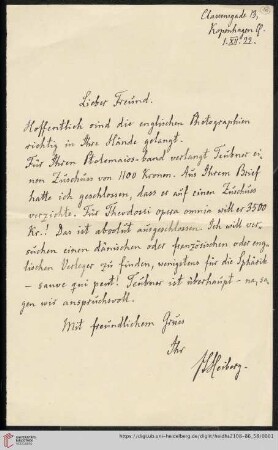 Classensgade 13,
Kopenhagen Ø.
1. XII. 22.
Lieber Freund.
Hoffentlich sind die englischen Photographien
richtig in Ihre Hände gelangt.
Für Ihren Ptolemaios-band verlangt Teubner ei-
nen Zuschuss von 1100 Kronen. Aus Ihrem Brief
hatte ich geschlossen, dass er auf einen Zuschuss
verzichte. Für Theodosii opera omnia will er 3500
Kr.! Das ist absolut ausgeschlossen. Ich will ver-
suchen einen dänischen oder französischen oder eng-
lischen Verleger zu finden, wenigstens für die Sphärik
– sauve qui peut! Teubner ist überhaupt – na, sa-
gen wir anspruchsvoll.
Mit freundlichem Gruss
Ihr
JLHeiberg.
https://digi.ub.uni-heidelberg.de/diglit/heidhs2108-86_59/0001